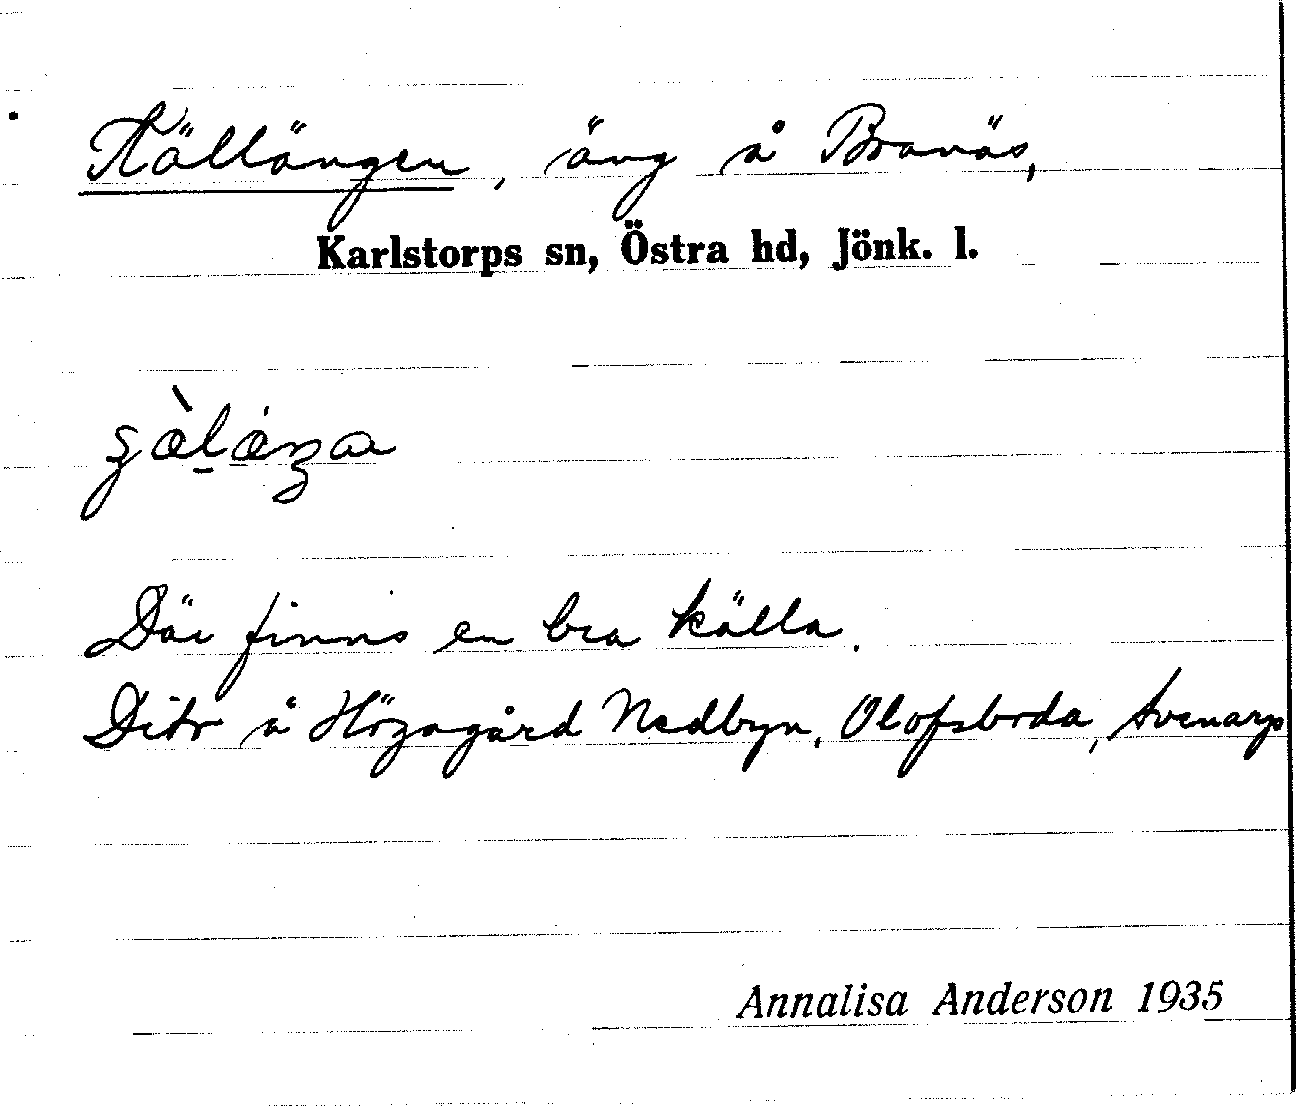 Källängen, äng å Branäs,
Karlstorps sn, Östra hd, Jönk. l.
Där finns en bra källa.
Dito å Högagärd Nedbyn, Olofsboda, Svenarp
Annalisa Anderson 1935